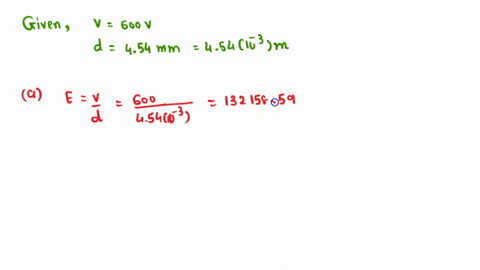 Given, v = 600 v
d = 4.54 mm = 4.54(10⁻³) m
(a) E = v/d = 600/4.54(10⁻³) = 132158.59